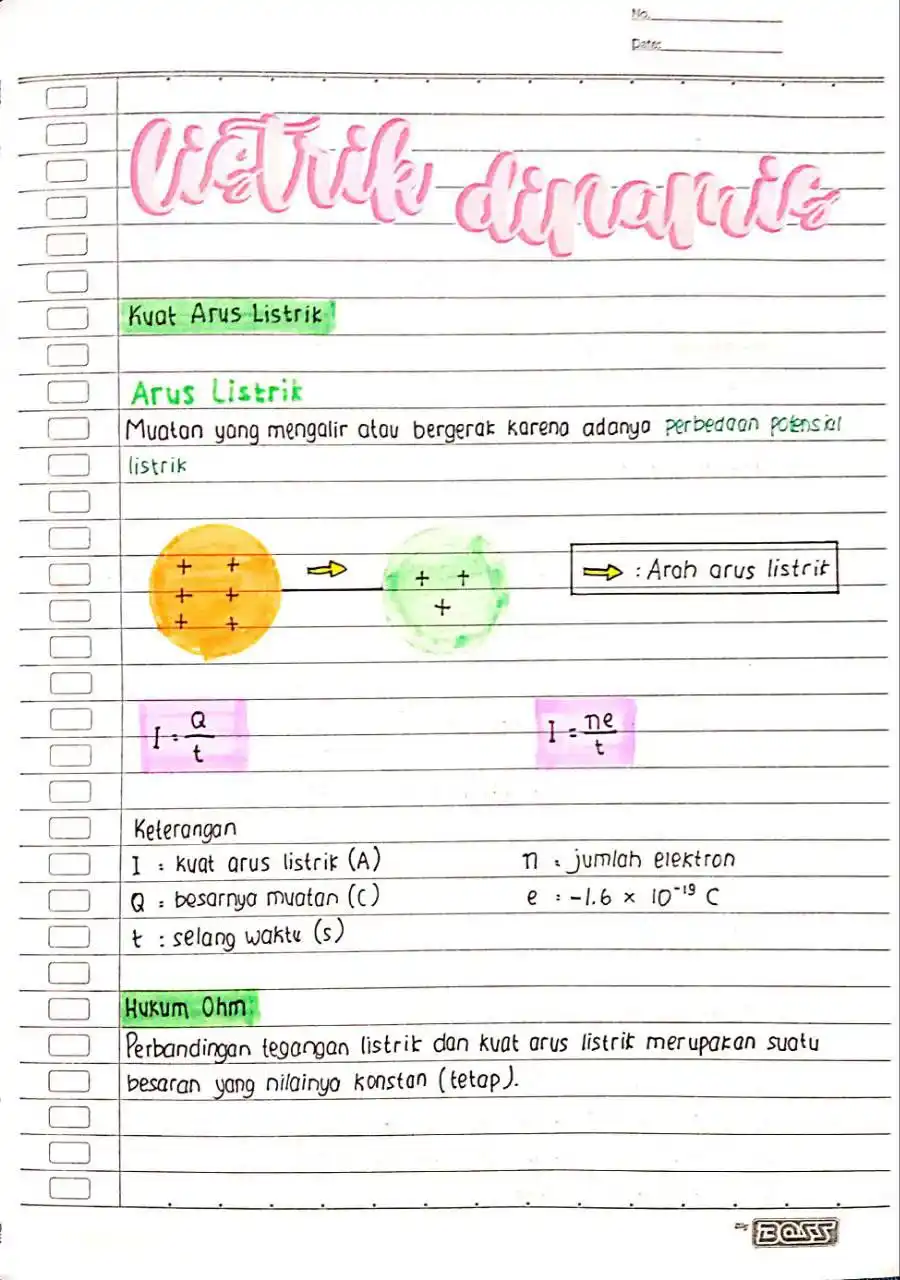 No.
Date:
listrik dinamis
Kuat Arus Listrik
Arus Listrik
Muatan yang mengalir atau bergerak karena adanya perbedaan potensial
listrik
+ + + +
+ + +
+ +
: Arah arus listrik
I = Q/t
I = ne/t
Keterangan
I : kuat arus listrik (A)
n : jumlah elektron
Q : besarnya muatan (C)
e : -1.6 × 10⁻¹⁹ C
t : selang waktu (s)
Hukum Ohm
Perbandingan tegangan listrik dan kuat arus listrik merupakan suatu
besaran yang nilainya konstan (tetap).
BOSS